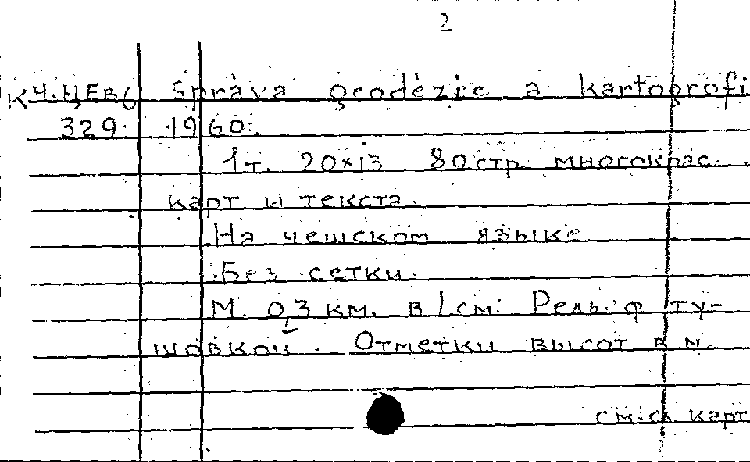 2
Správa geodézie a kartografi
329. 1960.
1т. 20×13 80стр. многокрас.
карт и текста.
На чешском языке
Без сетки.
М 0,3 км. в 1см. Рельеф ту-
шовкой. Отметки высот в м.
карт